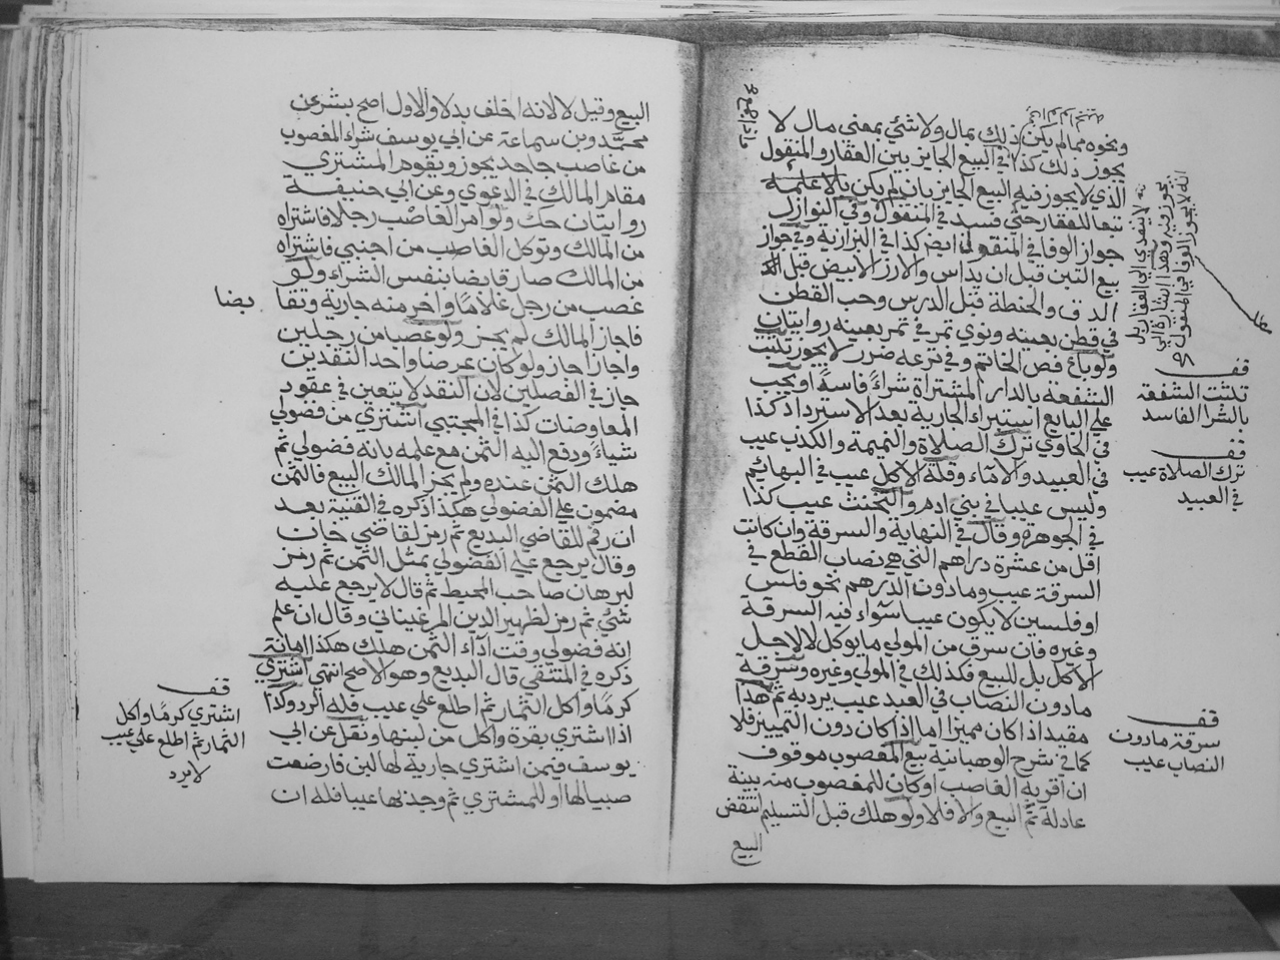 ونحوه مما لم يكن ذلك بمال ولا شئ بمعنى مال لا
يجوز ذلك كذا في البيع الجايز بين العقار والمنقول
الذي لا يجوز فيه البيع الجايز بان لم يكن بالاعلمه
تبعا للعقار حتى فسد في المنقول وفي النوازل
جواز الوفا في المنقول ايضا كذا في البزازية وفي جواز
بيع التبن قبل ان يداس والارز الابيض قبل
الدق والحنطة قبل الدرس وحب القطن
في قطن بعينه ونوي تمر في تمر بعينه روايتان
ولو باع فص الخاتم وفي نزعه ضرر لا يجوز تثبت
الشفعه بالدار المشتراة شراءً فاسداً ويجب
علي البايع استبراء الجارية بعد الاسترداد كذا
في الحاوي ترك الصلاة والنميمة والكذب عيب
في العبيد والامآء وقلة الاكل عيب في البهائم
وليس عيبا في بني ادم والتخنث عيب كذا
في الجوهرة وقال في النهاية والسرقة وان كانت
اقل من عشرة دراهم التي هي نصاب القطع في
السرقة عيب وما دون الدرهم نحو فلس
او فلسين لا يكون عيبا سوآء فيه السرقة
وغيره فان سرق من المولي ما يوكل لا لاجل
الاكل بل للبيع فكذلك في المولي وغيره وسرقة
ما دون النصاب في العبد عيب يرد به ثم هذا
مقيد اذا كان مميزا اما اذا كان دون التمييز فلا
كما في شرح الوهبانية بيع المغصوب موقوف
ان اقر به الغاصب او كان للمغصوب منه بينة
عادلة تم البيع والا فلا ولو هلك قبل التسليم انتقض
البيع
لا يتعدي الي العقار بل
يجوز فيه وبهذا اشارة الي
انه لا يجوز الوفا في المنقول
قف
تثبت الشفعة
بالشرا الفاسد
قف
ترك الصلاة عيب
في العبيد
قف
سرقة ما دون
النصاب عيب
البيع وقيل لا لانه اخلف بدلا والاول اصح بشر عن
محمد وبن سماعة عن ابي يوسف شراء المغصوب
من غاصب جاحد يجوز ويقوم المشتري
مقام المالك في الدعوي وعن ابي حنيفة
روايتان حك ولو امر الغاصب رجلا فاشتراه
من المالك وتوكل الغاصب من اجنبي فاشتراه
من المالك صار قابضا بنفس الشراء ولو
غصب من رجل غلاما واخر منه جارية وتقا
بضا
فاجاز المالك لم يجز ولو غصبا من رجلين
واجازا جاز ولو كان عرضا واحد النقدين
جاز في الفصلين لان النقد لا يتعين في عقود
المعاوضات كذا في المجتبي اشتري من فضولي
شياءً ودفع اليه الثمن مع علمه بانه فضولي ثم
هلك الثمن عنده ولم يجز المالك البيع فالثمن
مضمون علي الفضولي هكذا ذكره في القنية بعد
ان رقم للقاضي البديع ثم رمز لقاضي خان
وقال يرجع علي الفضولي بمثل الثمن ثم رمز
لبرهان صاحب المحيط ثم قال لا يرجع عليه
شئ ثم رمز لظهير الدين المرغيناني وقال ان علم
انه فضولي وقت اداء الثمن هلك هكذا امانة
ذكره في المنتقي قال البديع وهو الاصح انتهي اشتري
كرما واكل الثمار ثم اطلع علي عيب فله الرد وكذا
اذا اشتري بقرة واكل من لبنها ونقل عن ابي
يوسف فيمن اشتري جارية لها لبن فارضعت
صبيا لها او للمشتري ثم وجد بها عيبا فله ان
قف
اشتري كرما واكل
الثمار ثم اطلع علي عيب
لا يرد